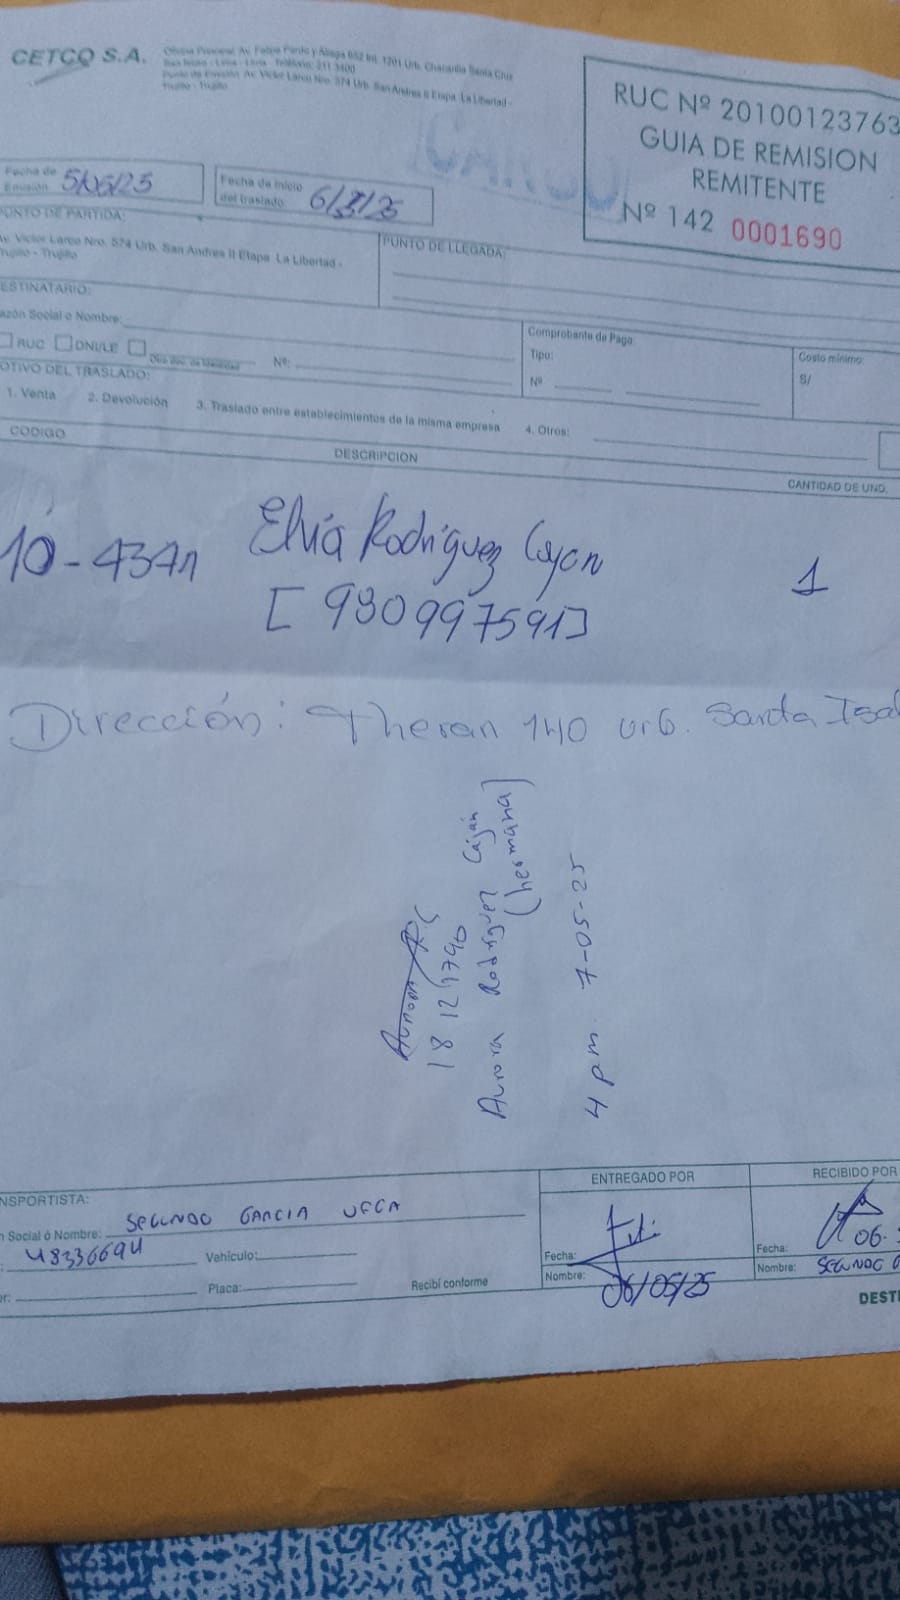 CETCO S.A.
Oficina Principal: Av. Felipe Pardo y Aliaga 652 Int. 1201 Urb. Chacarilla Santa Cruz
San Isidro - Lima - Lima - Teléfono: 211 3400
Punto de Emisión: Av. Victor Larco Nro. 574 Urb. San Andres II Etapa La Libertad -
Trujillo - Trujillo
CARGO
RUC Nº 20100123763
GUIA DE REMISION
REMITENTE
Nº 142 0001690
Fecha de Emisión 5/05/25
Fecha de inicio del traslado: 6/5/25
PUNTO DE PARTIDA:
Av. Victor Larco Nro. 574 Urb. San Andres II Etapa La Libertad -
Trujillo - Trujillo
PUNTO DE LLEGADA:
DESTINATARIO:
Razón Social o Nombre:
RUC DNI/LE Otro doc. de Identidad Nº:
Comprobante de Pago:
Tipo:
Nº
Costo mínimo:
S/
MOTIVO DEL TRASLADO:
1. Venta 2. Devolución 3. Traslado entre establecimientos de la misma empresa 4. Otros:
CODIGO DESCRIPCION CANTIDAD DE UND.
10-4371 Elvia Rodríguez Cayon 1
[980997591]
Dirección: Theran 140 urb. Santa Isa
Aurora R.C
18121790
Aurora Rodriguez Caján
(hermana)
4 pm. 7-05-25
NSPORTISTA:
n Social ó Nombre: SEGUNDO GARCIA VEGA
: 48336694
Vehículo:
Placa:
Recibí conforme
ENTREGADO POR
Fecha:
Nombre: 06/05/25
RECIBIDO POR
Fecha: 06.
Nombre: SEGUNDO G
DESTI